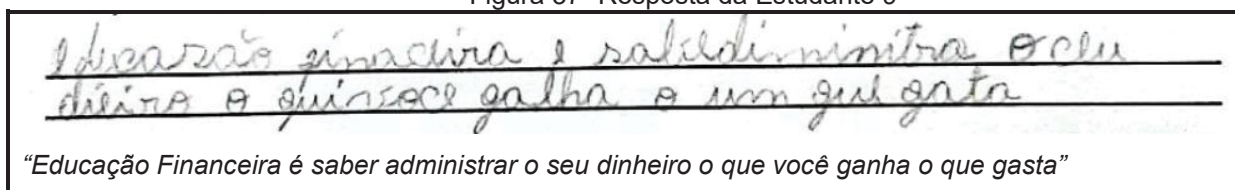 Figura 37 Resposta da Estudante 9
educazão finacira e sabediminitra o ceu
diéiro o quivsoce galha o um gue gata
“Educação Financeira é saber administrar o seu dinheiro o que você ganha o que gasta”